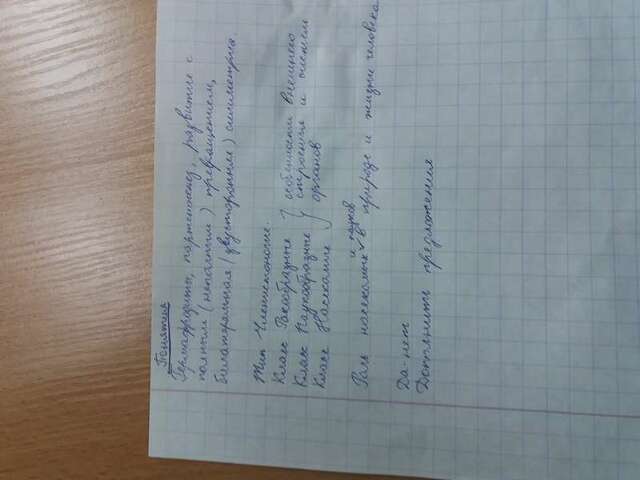 Понятия
Гермафродит, партеногенез, развитие с
полным (неполным) превращением,
билатеральная (двусторонняя) симметрия.
Тип Членистоногие.
Класс Ракообразные } особенности внешнего
Класс Паукообразные } строения и
Класс Насекомые } органов
и пауков
Роль насекомых в природе и жизни человека
Да-нет
Дополнить предложения